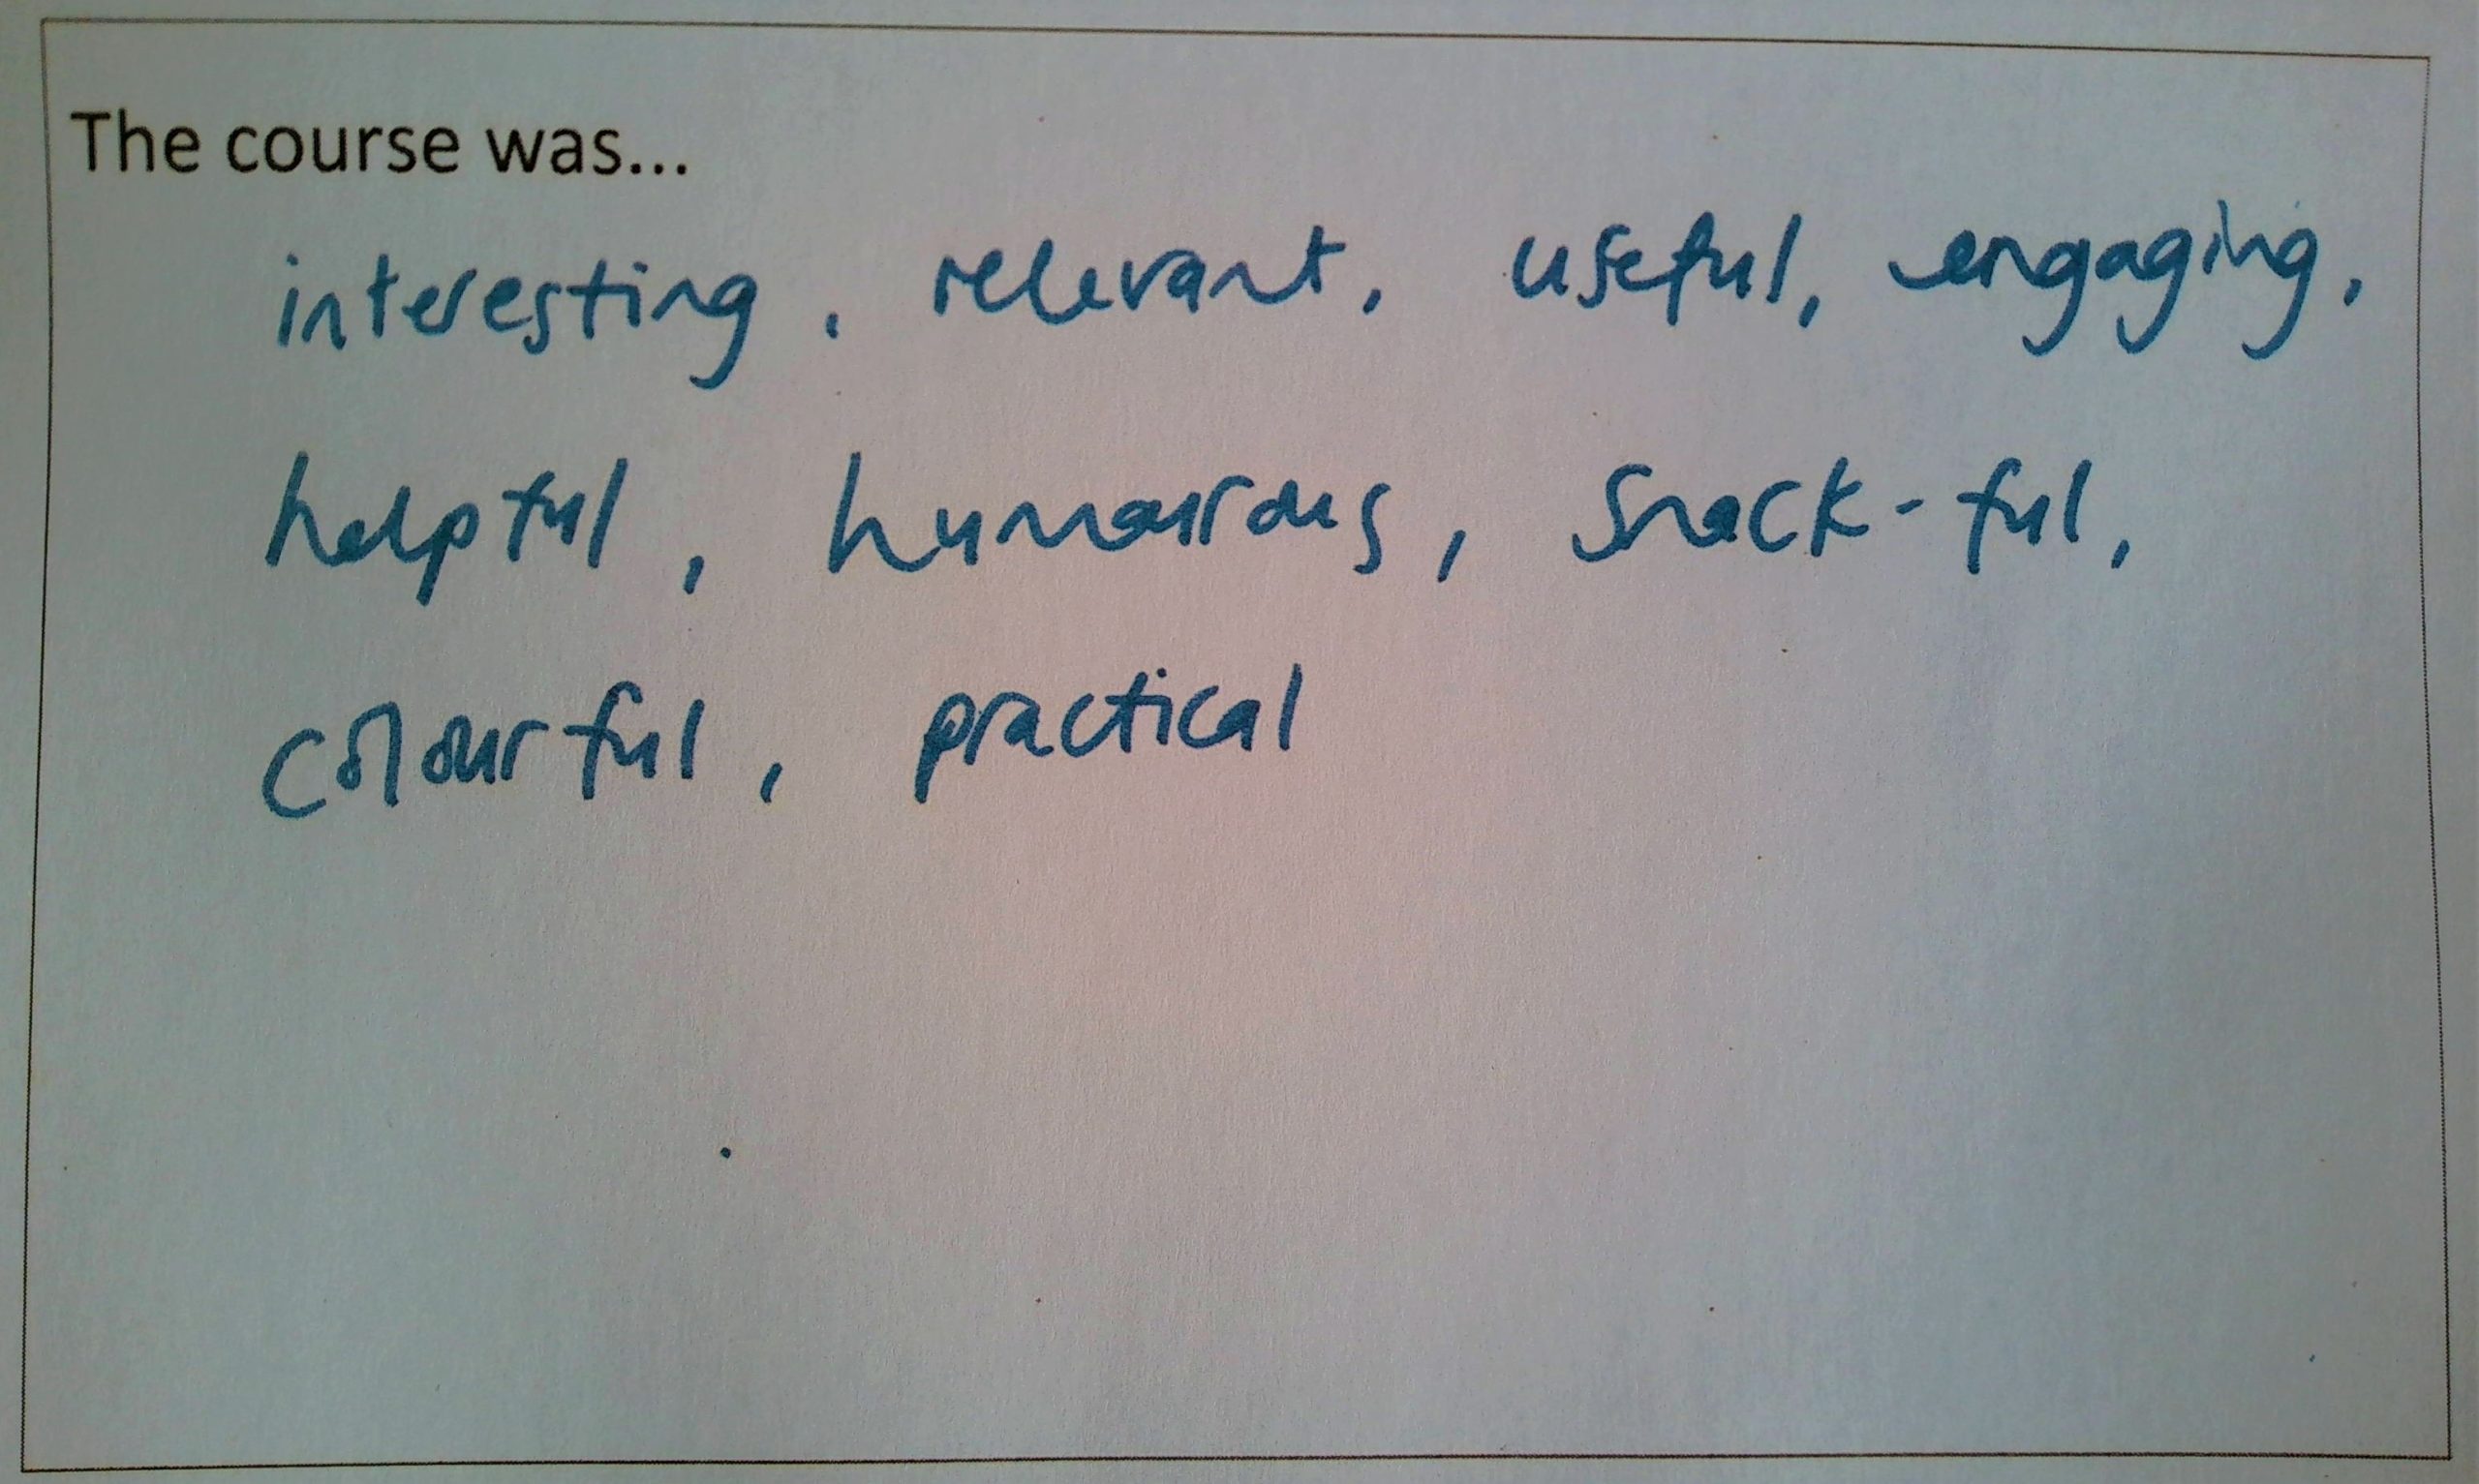 The course was...
interesting, relevant, useful, engaging,
helpful, humourous, snack-ful,
colourful, practical